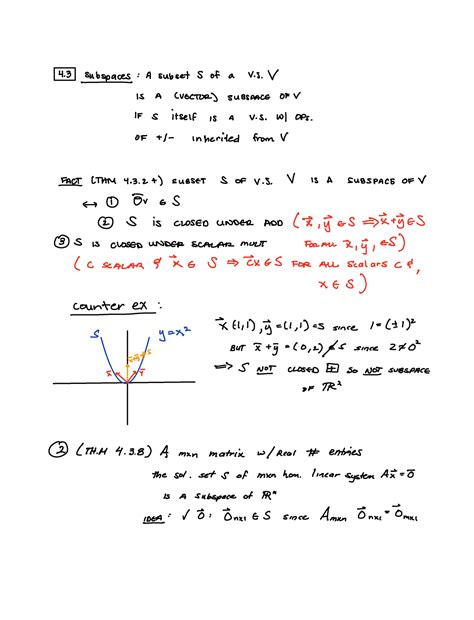 4.3 Subspaces : A subset S of a V.S. V
is a (vector) subspace of V
if S itself is a V.S. w/ ops.
of +/- inherited from V
Fact (Thm 4.3.2+) subset S of V.S. V is a subspace of V
↔ ① 0⃗v ∈ S
② S is closed under add (x⃗, y⃗ ∈ S ⇒ x⃗+y⃗ ∈ S
for all x⃗, y⃗, ∈ S)
③ S is closed under scalar mult
( c scalar & x⃗ ∈ S ⇒ cx⃗ ∈ S for all scalars c &,
x ∈ S )
counter ex :
S y=x²
x⃗+y⃗ ∉ S
x⃗ y⃗
x⃗ (1,1), y⃗ = (1,1) = S since 1 = (±1)²
but x⃗ + y⃗ = (0,2) ∉ S since 2 ≠ 0²
⇒ S not closed ⊞ so not subspace
of ℝ²
② (Thm 4.3.8) A mxn matrix w/ real # entries
the sol. set S of mxn hom. linear system Ax⃗ = 0⃗
is a subspace of ℝⁿ
idea : √ 0⃗ : 0⃗nx1 ∈ S since Amxn 0⃗nx1 = 0⃗mx1